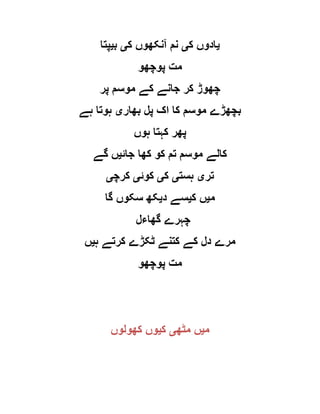 یادوں کی نم آنکھوں کی بیپتا
مت پوچھو
چھوڑ کر جانے کے موسم پر
بچھڑے موسم کا اک پل بھاری ہوتا ہے
پھر کہتا ہوں
کالے موسم تم کو کھا جائیں گے
تری ہستی کی کوئی کرچی
میں کیسے دیکھ سکوں گا
چہرے گھاءل
مرے دل کے کتنے ٹکڑے کرتے ہیں
مت پوچھو
میں مٹھی کیوں کھولوں